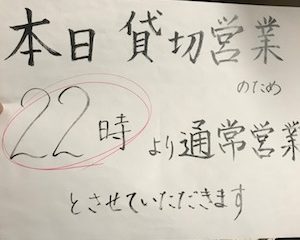 本日 貸切営業
のため
22時 より通常営業
とさせていただきます